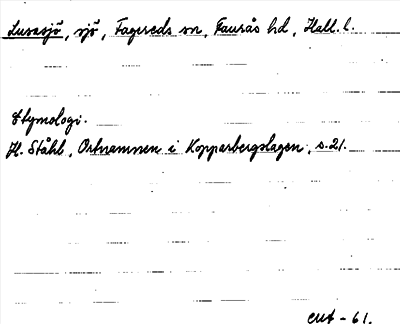 Lusasjö, sjö, Fagereds sn, Faurås hd, Hall. l.
Etymologi.
H. Ståhl, Ortnamnen i Kopparbergslagen, s. 21.
EMT - 61.